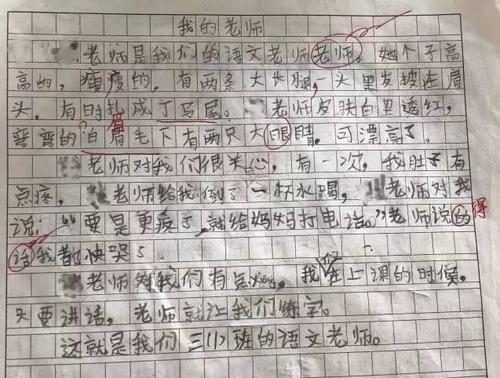 我的老师
老师是我们的语文老师老师。她个子高
高的，瘦瘦的，有两条大长腿，一头黑发披在肩
头，有时扎成了马尾。老师皮肤白里透红，
弯弯的眉毛下有两只大眼睛，可漂亮了。
老师对我们很关心，有一次，我肚子有
点疼，老师给我倒了一杯水喝，老师对我
说：“要是更疼了，就给妈妈打电话。”老师说的 得
话我都快哭了
老师对我们有点，我在上课的时候，
只要讲话，老师就让我们练字。
这就是我们三(1)班的语文老师。